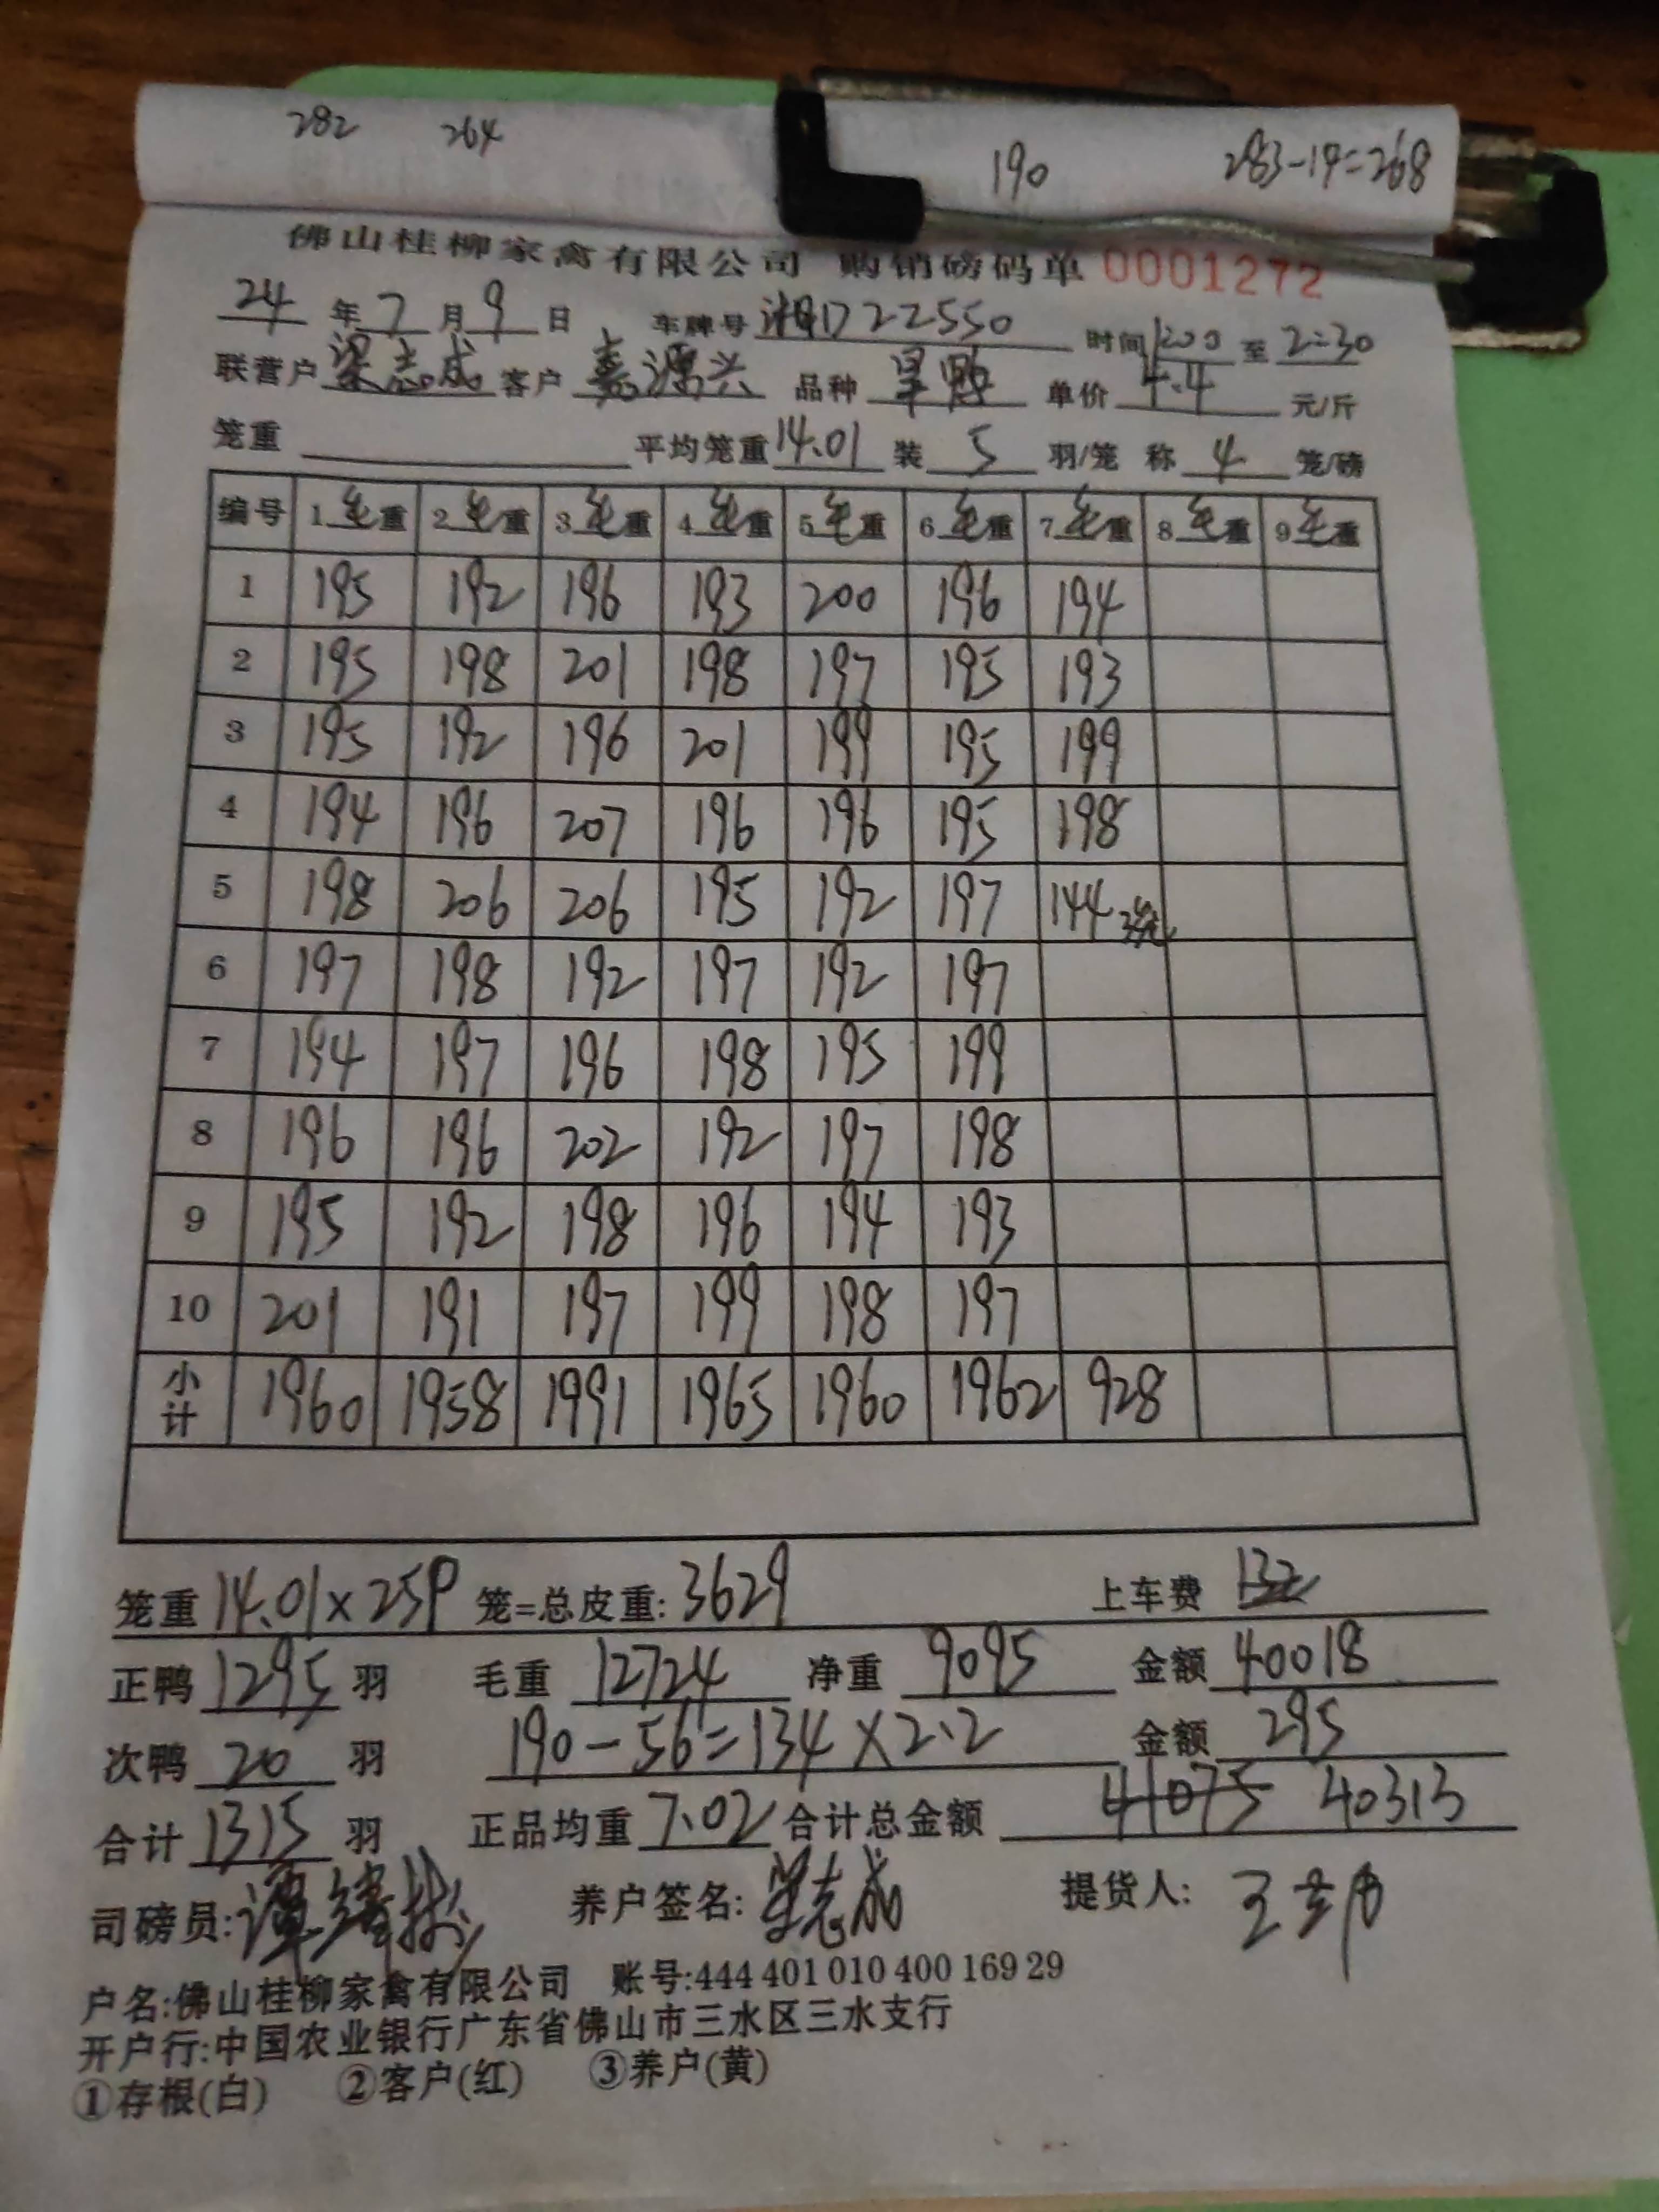 282 264 190 283-14=268
佛山桂柳家禽有限公司 购销磅码单 0001272
24 年 7 月 9 日 车牌号 湘D22550 时间 1200 至 2:30
联营户 梁志成 客户 嘉源兴 品种 旱鸭 单价 4.4 元/斤
笼重 平均笼重 14.01 装 5 羽/笼 称 4 笼/磅
编号 1 毛重 2 毛重 3 毛重 4 毛重 5 毛重 6 毛重 7 毛重 8 毛重 9 毛重
1 195 192 196 193 200 196 194
2 195 198 201 198 197 195 193
3 195 192 196 201 199 195 199
4 194 196 207 196 196 195 198
5 198 206 206 195 192 197 144 3笼
6 197 198 192 197 192 197
7 194 197 196 198 195 199
8 196 196 202 192 197 198
9 195 192 198 196 194 193
10 201 191 197 199 198 197
小计 1960 1958 1991 1965 1960 1962 928
笼重 14.01×259 笼=总皮重: 3629 上车费 132
正鸭 1295 羽 毛重 12724 净重 9095 金额 40018
次鸭 20 羽 190-56=134×2.2 金额 295
合计 1315 羽 正品均重 7.02 合计总金额 41075 40313
司磅员: 养户签名: 梁志成 提货人:
户名:佛山桂柳家禽有限公司 账号:444 401 010 400 169 29
开户行:中国农业银行广东省佛山市三水区三水支行
①存根(白) ②客户(红) ③养户(黄)